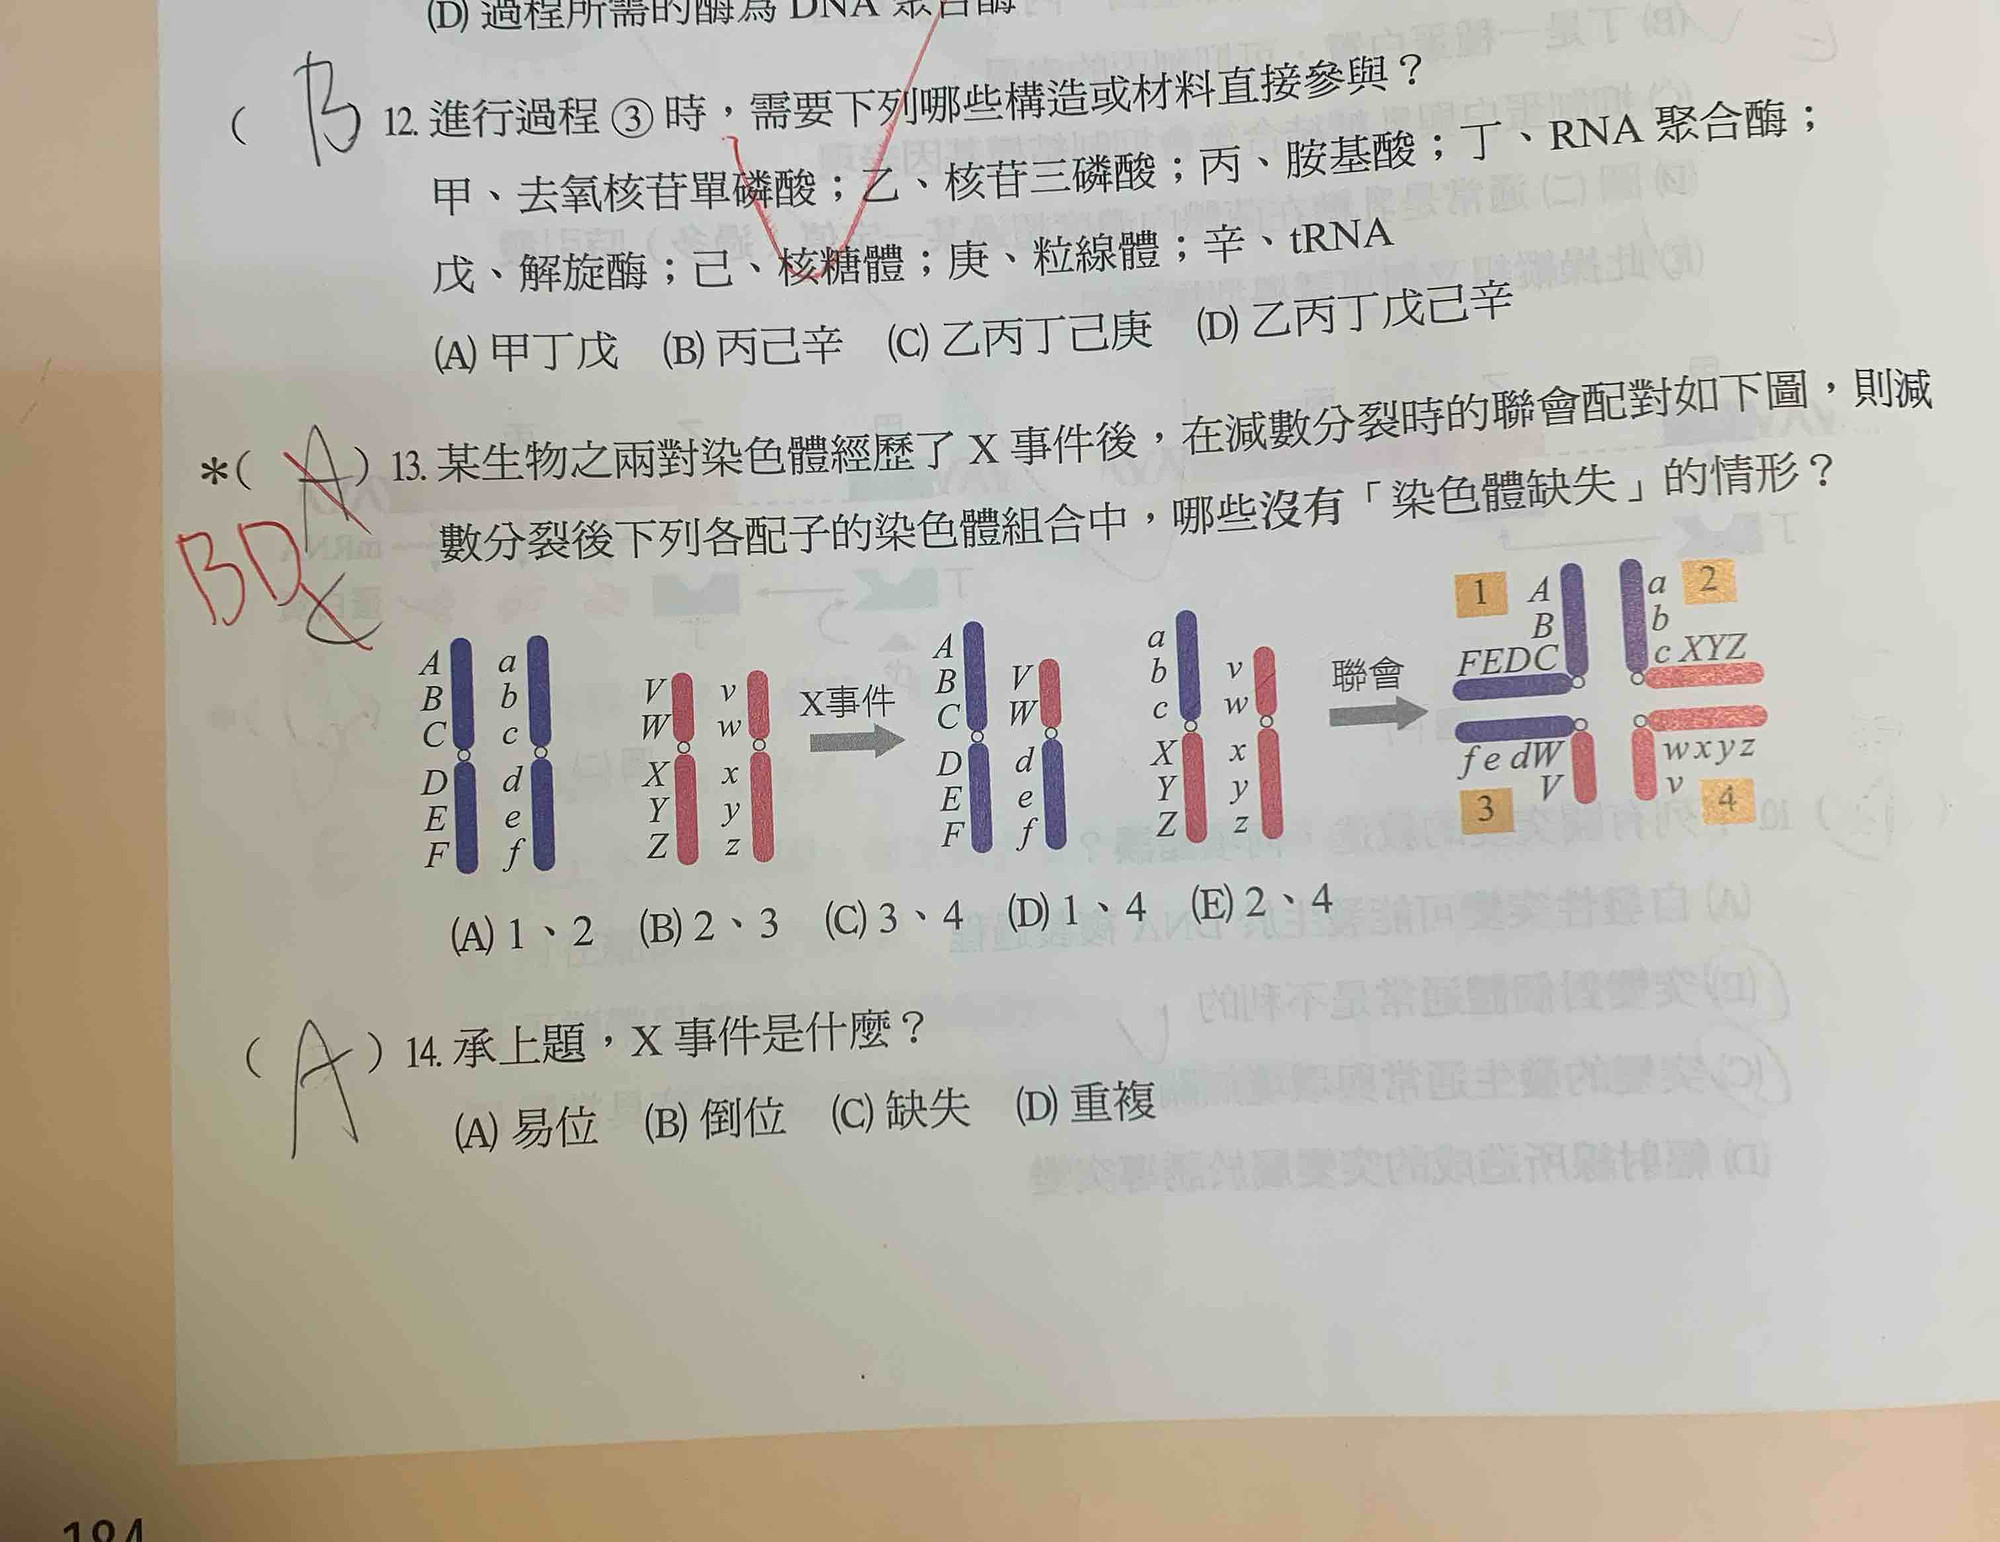 (D) 過程所需的酶為 DNA 聚合酶
( B 12. 進行過程 ③ 時,需要下列哪些構造或材料直接參與?
甲、去氧核苷單磷酸;乙、核苷三磷酸;丙、胺基酸;丁、RNA 聚合酶;
戊、解旋酶;己、核糖體;庚、粒線體;辛、tRNA
(A) 甲丁戊 (B) 丙己辛 (C) 乙丙丁己庚 (D) 乙丙丁戊己辛
*( A ) 13. 某生物之兩對染色體經歷了 X 事件後,在減數分裂時的聯會配對如下圖,則減
BD C
數分裂後下列各配子的染色體組合中,哪些沒有「染色體缺失」的情形?
A a V v A V a v 1 A a 2
B b W w B W b w B b
C c C c FEDC c XYZ
X事件 聯會
D d X x D d X x f e d W w x y z
E e Y y E e Y y V v
F f Z z F f Z z 3 4
(A) 1、2 (B) 2、3 (C) 3、4 (D) 1、4 (E) 2、4
( A ) 14. 承上題,X 事件是什麼?
(A) 易位 (B) 倒位 (C) 缺失 (D) 重複
184